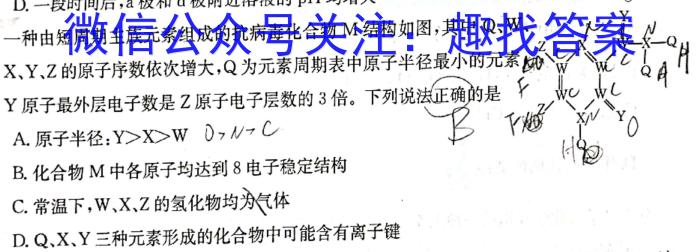 D. 一段时间后,a极和d极附近溶液的pH均增大
一种由短周期主族元素组成的抗病毒化合物M结构如图,其中Q、W、
微信公众号关注：趣找答案
X、Y、Z的原子序数依次增大,Q为元素周期表中原子半径最小的元素,
Y原子最外层电子数是Z原子电子层数的3倍。下列说法正确的是
B
A. 原子半径:Y>X>W O>N>C
B. 化合物M中各原子均达到8电子稳定结构
C. 常温下,W、X、Z的氢化物均为气体
D. Q、X、Y三种元素形成的化合物中可能含有离子键
Z X W X Q
W W Q
W W
Z X Y
Q